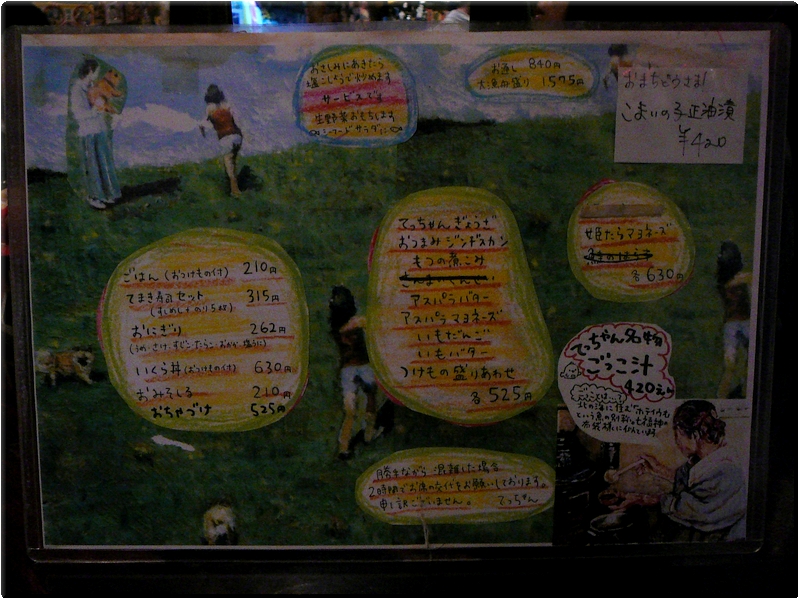 おさしみにあきたら
塩こしょうで炒めます
サービスです
生野菜おもちします
シーフードサラダに
お通し 840円
大漁盛り 1575円
おまちどうさま!
こまいの子正油漬
¥420
てっちゃんぎょうざ
おつまみジンギスカン
もつの煮こみ
アスパラバター
アスパラマヨネーズ
いもだんご
いもバター
つけもの盛りあわせ
各525円
姫たらマヨネーズ
各630円
ごはん(おつけもの付) 210円
てまき寿司セット 315円
(すしめしとのり5枚)
おにぎり 262円
(うめ・さけ・すじこ・たらこ・おかか・塩うに)
いくら丼(おつけもの付) 630円
おみそしる 210円
おちゃづけ 525円
てっちゃん名物
ごっこ汁
420えん
ごっことは
北の海に棲む「ホテイウオ」
という魚の別称。七福神の
布袋様に似ています。
勝手ながら 混雑した場合
2時間でお席の交代をお願いしております。
申し訳ございません。 てっちゃん